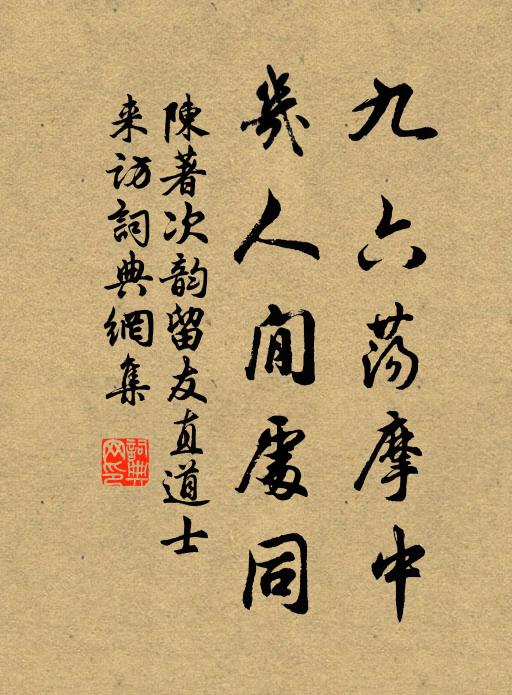 九六荡摩中
幾人閒處同
陳著次韵留友直道士
来访詞典網集
詞典網印